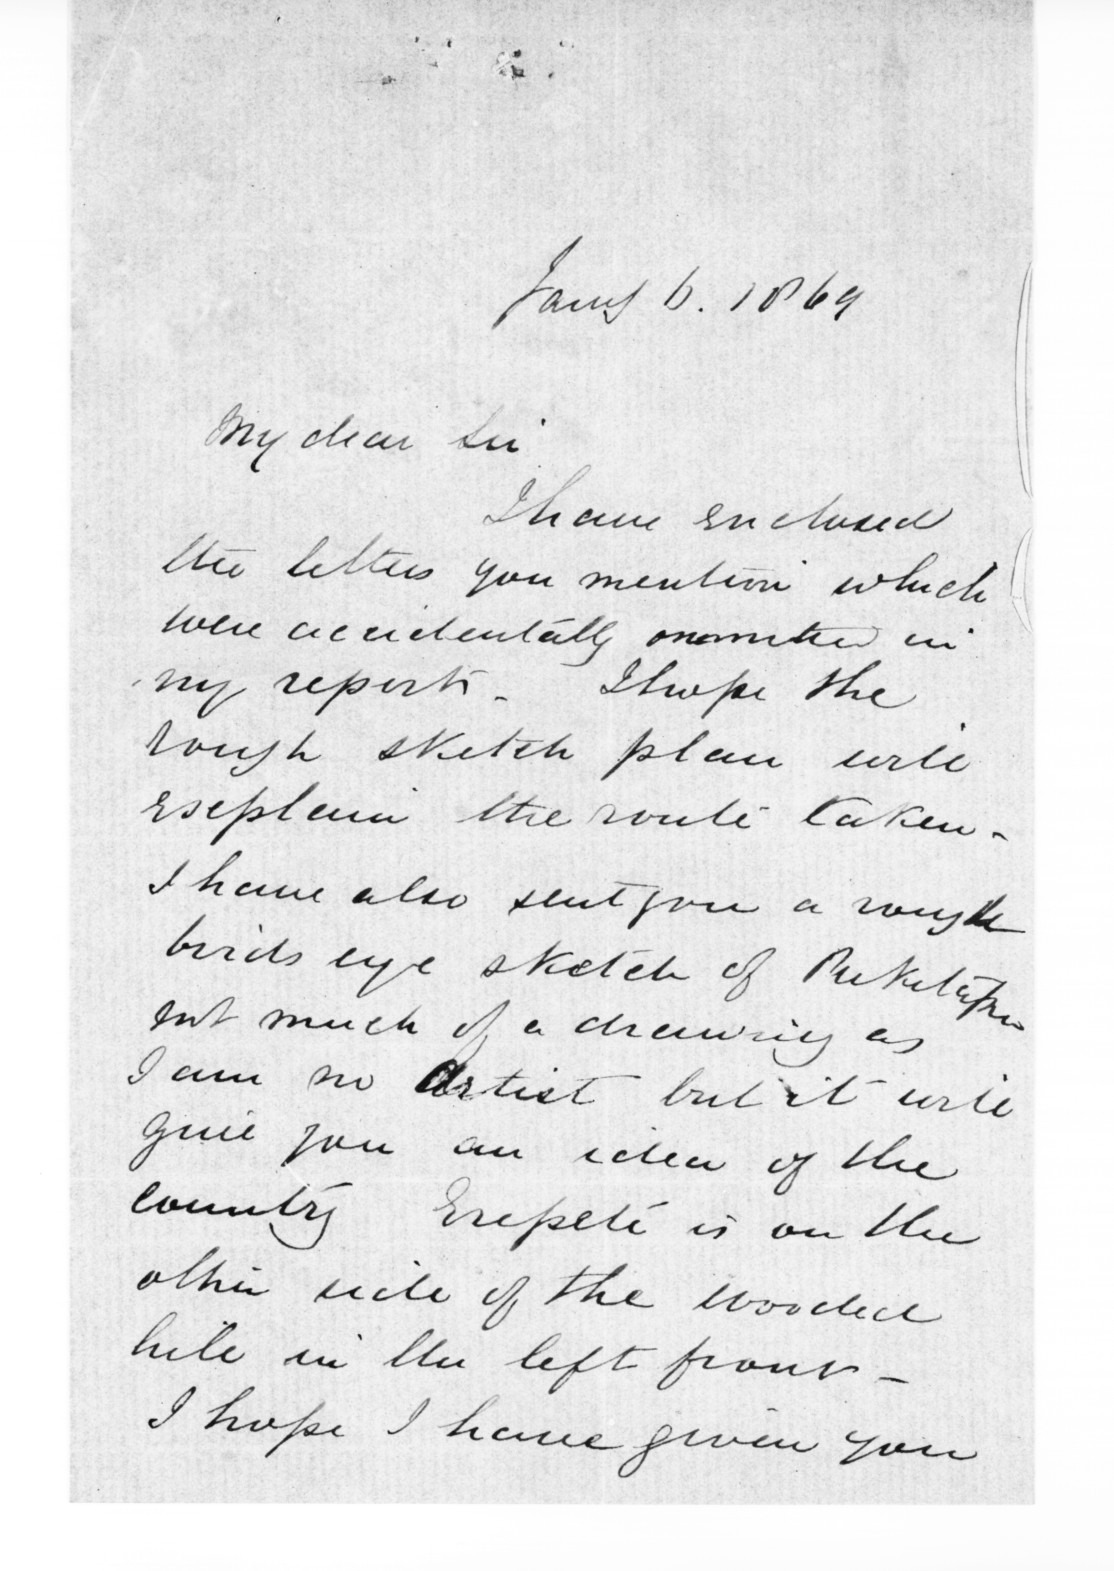 Jany 6. 1869
My dear Sir
I have enclosed
the letters you mention which
were accidentally in
my report - I hope the
rough sketch plan will
explain the route taken -
I have also sent you a rough
birds eye sketch of Puketapu
not much of a drawing as
I am no Artist but it will
give you an idea of the
country is on the
other side of the wooded
hill in the left front -
I hope I have given you